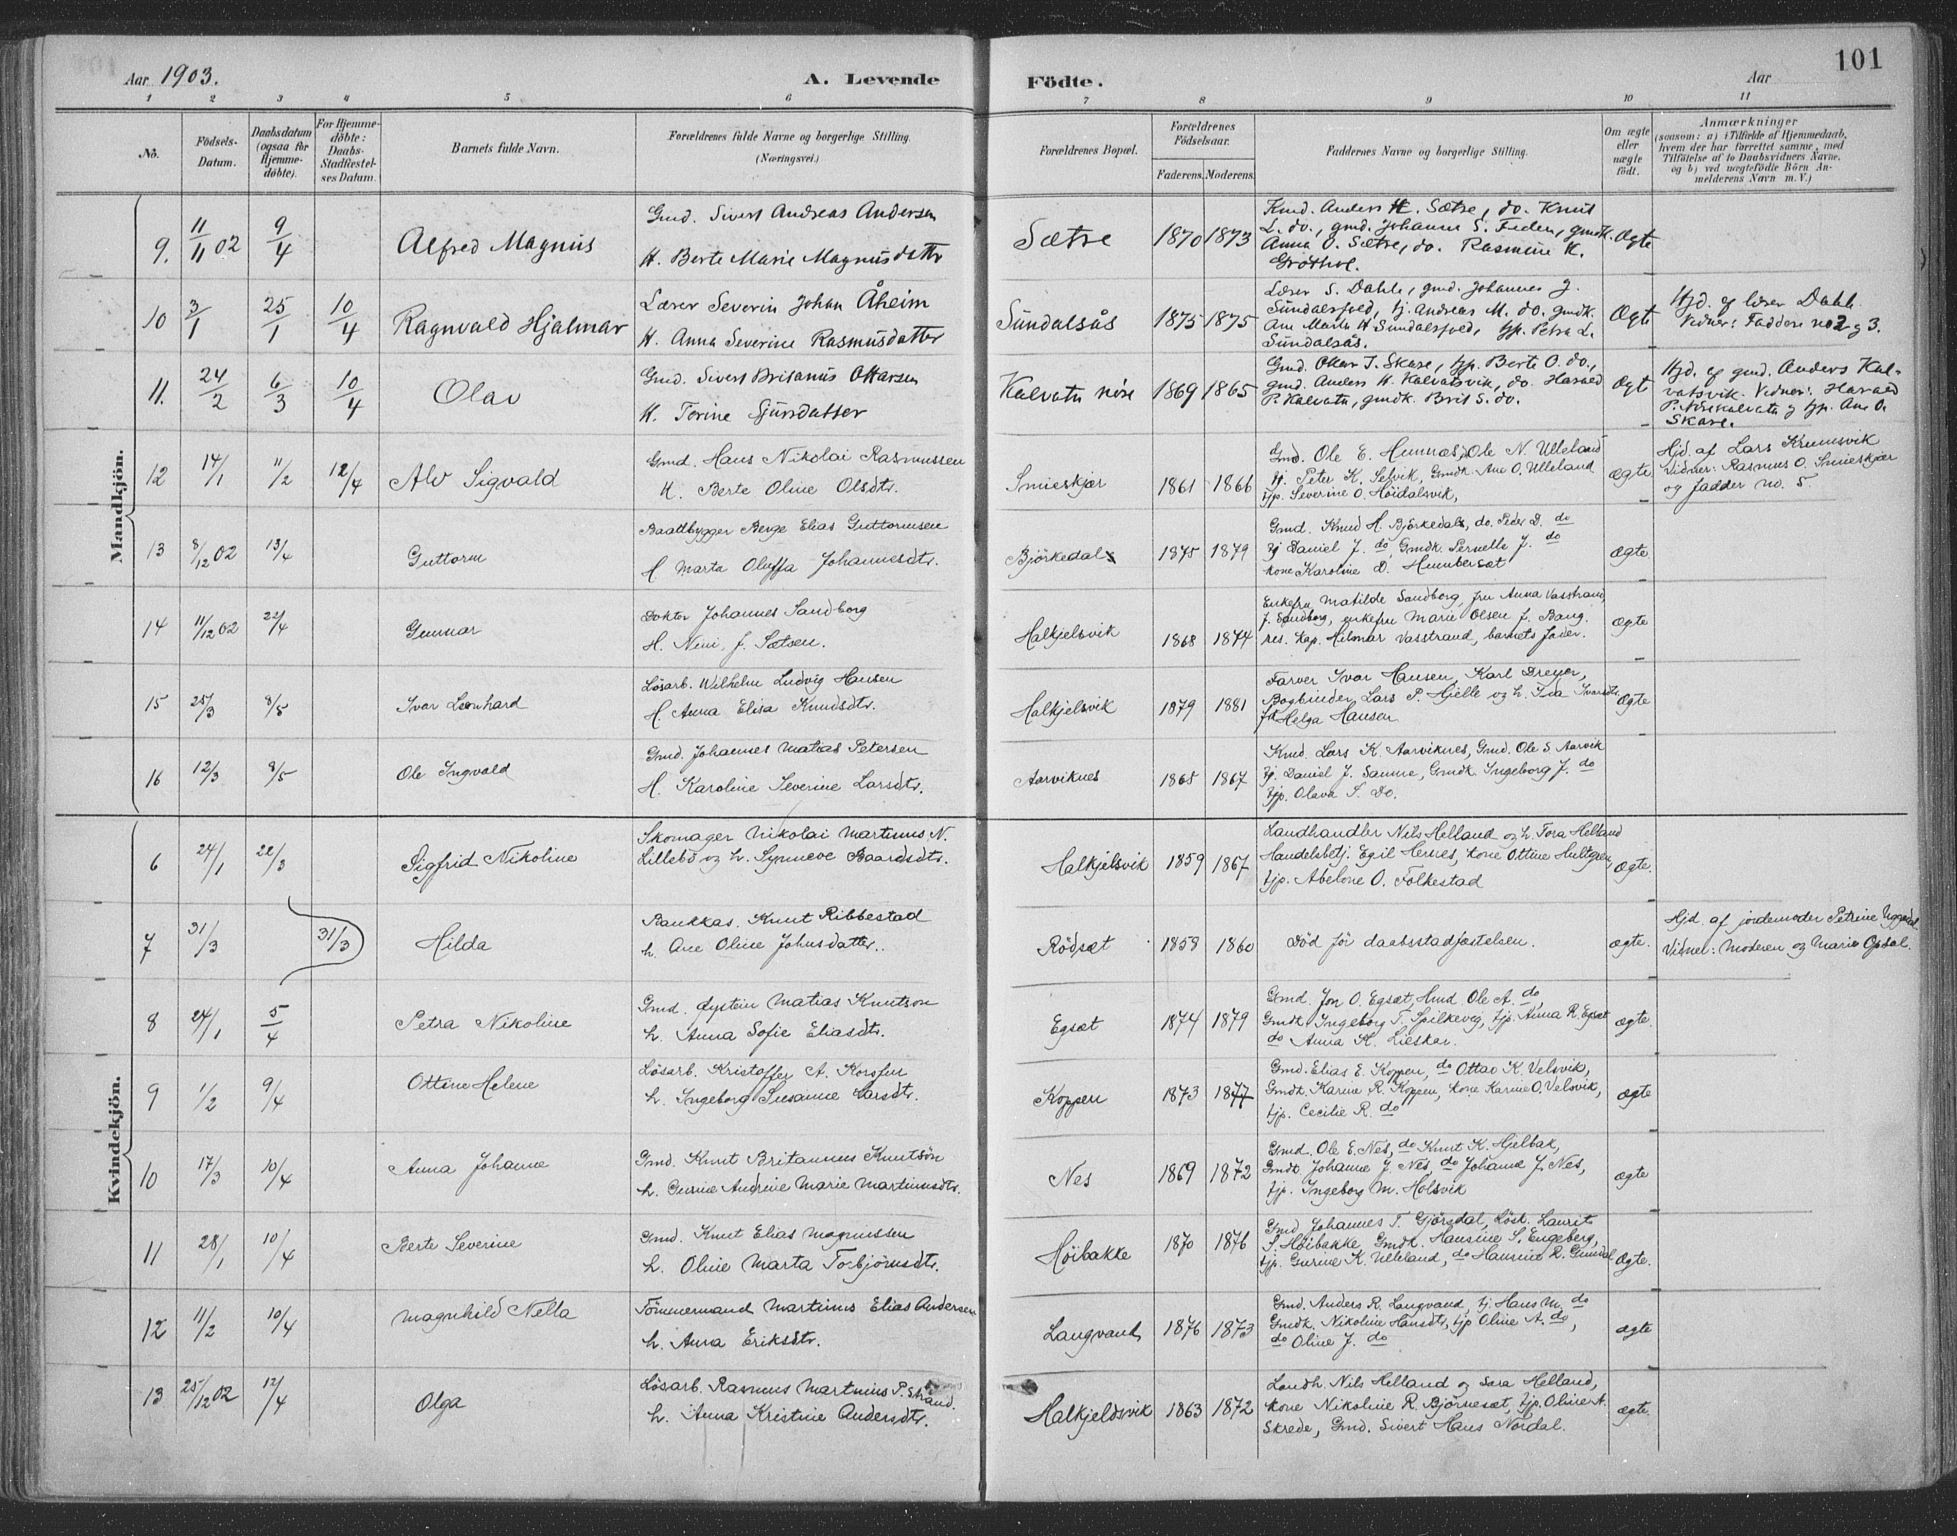 Aar 1903.
A. Levende Födte.
Aar
101
1 2 3 4 5 6 7 8 9 10 11
No.
Födsels-Datum.
Daabsdatum (ogsaa for Hjemme-döbte).
For Hjemme-döbte: Daabs-Stadfæstel-ses Datum.
Barnets fulde Navn.
Forældrenes fulde Navne og borgerlige Stilling.
(Næringsvei.)
Forældrenes Bopæl.
Forældrenes Födselsaar.
Faderens. Moderens.
Faddernes Navne og borgerlige Stilling.
Om ægte eller uægte födt.
Anmærkninger
(saasom: a) i Tilfælde af Hjemmedaab,
hvem der har forrettet samme, med
Tilföielse af to Daabsvidners Navne,
og b) ved uægtefödte Börn An-
melderens Navn m. V.)
Mandkjön.
9. 11/11 02 9/4 Alfred Magnus
Gmd. Sivert Andreas Andersen
H. Berte Marie Magnusdatter
Sætre 1870 1873
Kmd. Anders H. Sætre, do. Knut
L. do., gmd. Johannes S. , gmdk.
Anna O. Sætre, do. Rasmine K.
Grøthol.
Ægte
10 3/1 25/1 10/4 Ragnvald Hjalmar
Lærer Severin Johan Åheim
H. Anna Severine Rasmusdatter
Sundalsås 1875 1875
Lærer S. Dahle, gmd. Johannes J.
Sundalsfoed, tj. Andreas M. do. gmdk.
Ane Marta H Sundalsfoed, tjp. Petra L.
Sundalsås.
Ægte
Hjd. af lærer Dahle.
Vidner: Faddere no 2 og 3.
11. 24/2 6/3 10/4 Olav
Gmd. Sivert Britanus Ottarsen
H. Torine Sjursdatter
Kalvatn nøre 1869 1865
Gmd. Ottar I. Skare, tjp. Berte O. do.,
gmd. Anders H. Kalvatsvik, do. Harald
P. Kalvatn, gmdk. Brit S. do.
Ægte
Hjd. af gmd. Anders Kal-
vatsvik. Vidner: Harald
P. Nörekalvatn og tjp. Ane O.
Skare.
12 14/1 11/2 12/4 Alv Sigvald
Gmd. Hans Nikolai Rasmussen
H. Berte Oline Olsdtr.
Smieskjær 1861 1866
Gmd. Ole E. Humnes, Ole N. Ulleland
tj. Peter K. Selvik, Gmdk. Ane O. Ulleland
tjp. Severine O. Höidalsvik,
ægte
Hjd. af Lars Krumsvik
Vidner: Rasmus O. Smieskjær
og fadder no. 5.
13 8/12 02 13/4 Guttorm
Baatbygger Berge Elias Guttormsen
H. Marta Oluffa Johannesdtr.
Björkedal 1875 1879
Gmd. Knud H. Björkedal, do. Peder D. do
tj Daniel J. do, Gmdk. Pernelle J. do
kone Karoline D. Humbersæt
ægte
14 11/12 02 22/4 Gunnar
Doktor Johannes Sandborg
H. Nini f. Sætsen.
Halkjelsvik 1868 1874
Enkefru Matilde Sandborg, fru Anna Vasstrand,
f. Sandborg, enkefru Marie Olsen f. Bang.
res. kap. Hilmar Vasstrand, barnets fader.
ægte
15 25/3 8/5 Ivar Leonhard
Lösarb. Wilhelm Ludvig Hansen
H. Anna Elisa Knudsdtr.
Halkjelsvik 1879 1881
Farver Ivar Hansen, Karl Dreyer,
Bogbinder Lars P. Hjelle og h. Ida Ivarsdtr.
frk Helga Hansen
Ægte
16 12/3 8/5 Ole Ingvald
Gmd. Johannes Matias Petersen
H. Karoline Severine Larsdtr.
Aarviknes 1865 1867
Kmd. Lars K Aarviknes, Gmd. Ole S Aarvik
tj. Daniel J. Samme, Gmdk. Ingeborg J. do
tjp. Olava S. Do.
Kvindekjön.
6 24/1 22/3 Sigfrid Nikoline
Skomager Nikolai Martinus N.
Lillebö og h. Synneve Baardsdtr.
Halkjelsvik 1859 1867
Landhandler Nils Helland og h. Tora Helland
Handelsbetj. Egil Hernes, kone Ottine Hultgren,
tjp. Abelone O. Folkestad
ægte.
7 31/3 31/3 Hilda
Bankkas. Knut Ribbestad
h. Ane Oline Johnsdatter.
Rödsæt 1858 1860
Död för daabsstadfæstelsen.
ægte
Hjd. af jordemoder Petrine Uggedal
Vidner: Moderen og Marie Opdal.
8 24/1 5/4 Petra Nikoline
Gmd. Øystein Matias Knutson
h. Anna Sofie Eliasdtr.
Egsæt 1874 1879
Gmd. Jon O. Egsæt, Hmd Ole A. do,
Gmdk. Ingeborg T. Spilkevig, tjp. Anna R. Egsæt
do Anna K. Lieskar.
ægte.
9 1/2 9/4 Ottine Helene
Lösarb. Kristoffer A. Korsfur
h. Ingeborg Susanne Larsdtr.
Koppen 1873 1877
Gmd. Elias E. Koppen, do Ottar K. Velsvik,
Gmdk. Karine R. Koppen, kone Karine O. Velsvik,
tjp. Cecilie R. do
ægte
10 17/3 10/4 Anna Johanne
Gmd. Knut Britannus Knutsön
h. Gurine Andrine Marie Martinusdtr.
Nes 1869 1872
Gmd. Ole E. Nes, do Knut K. Hjelbak,
Gmdk. Johanne J. Nes, do Johanne J. Nes,
tjp. Ingeborg M. Holsvik
ægte
11 28/1 10/4 Berte Severine
Gmd. Knut Elias Magnussen
h. Oline Marta Torbjörnsdtr.
Höibakke 1870 1876
Gmd Johannes T. Gjörsdal, Lösk. Laurits
S. Höibakke, Gmdk. Hansine S. Engeberg,
tjp. Gurine K. Ulleland, do Hansine R. Gundal
Ægte.
12 11/2 10/4 Magnhild Nella
Tömmermand Martinus Elias Andersen
h. Anna Eriksdtr.
Langvand 1876 1873
Gmd. Anders R. Langvand, tj. Hans M. do
Gmdk. Nikoline Hansdtr, tjp Oline A. do,
do Oline J. do
ægte
13 25/12 02 12/4 Olga
Lösarb. Rasmus Martinius P. Strand.
h. Anna Kristine Andersdtr.
Halkjeldsvik 1863 1872
Landh. Nils Helland og Sara Helland,
kone Nikoline R. Björnesæt, tjp. Oline A.
Skrede, Gmd. Sivert Hans Nordal.
ægte.